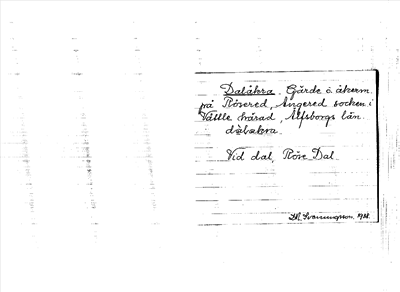 Dalåkra. Gärde o. åkerm.
på Rösered, Angered socken i
Vättle härad, Älfsborgs län.
dàlakra.
Vid dal, Röse Dal.
Svenningsson.